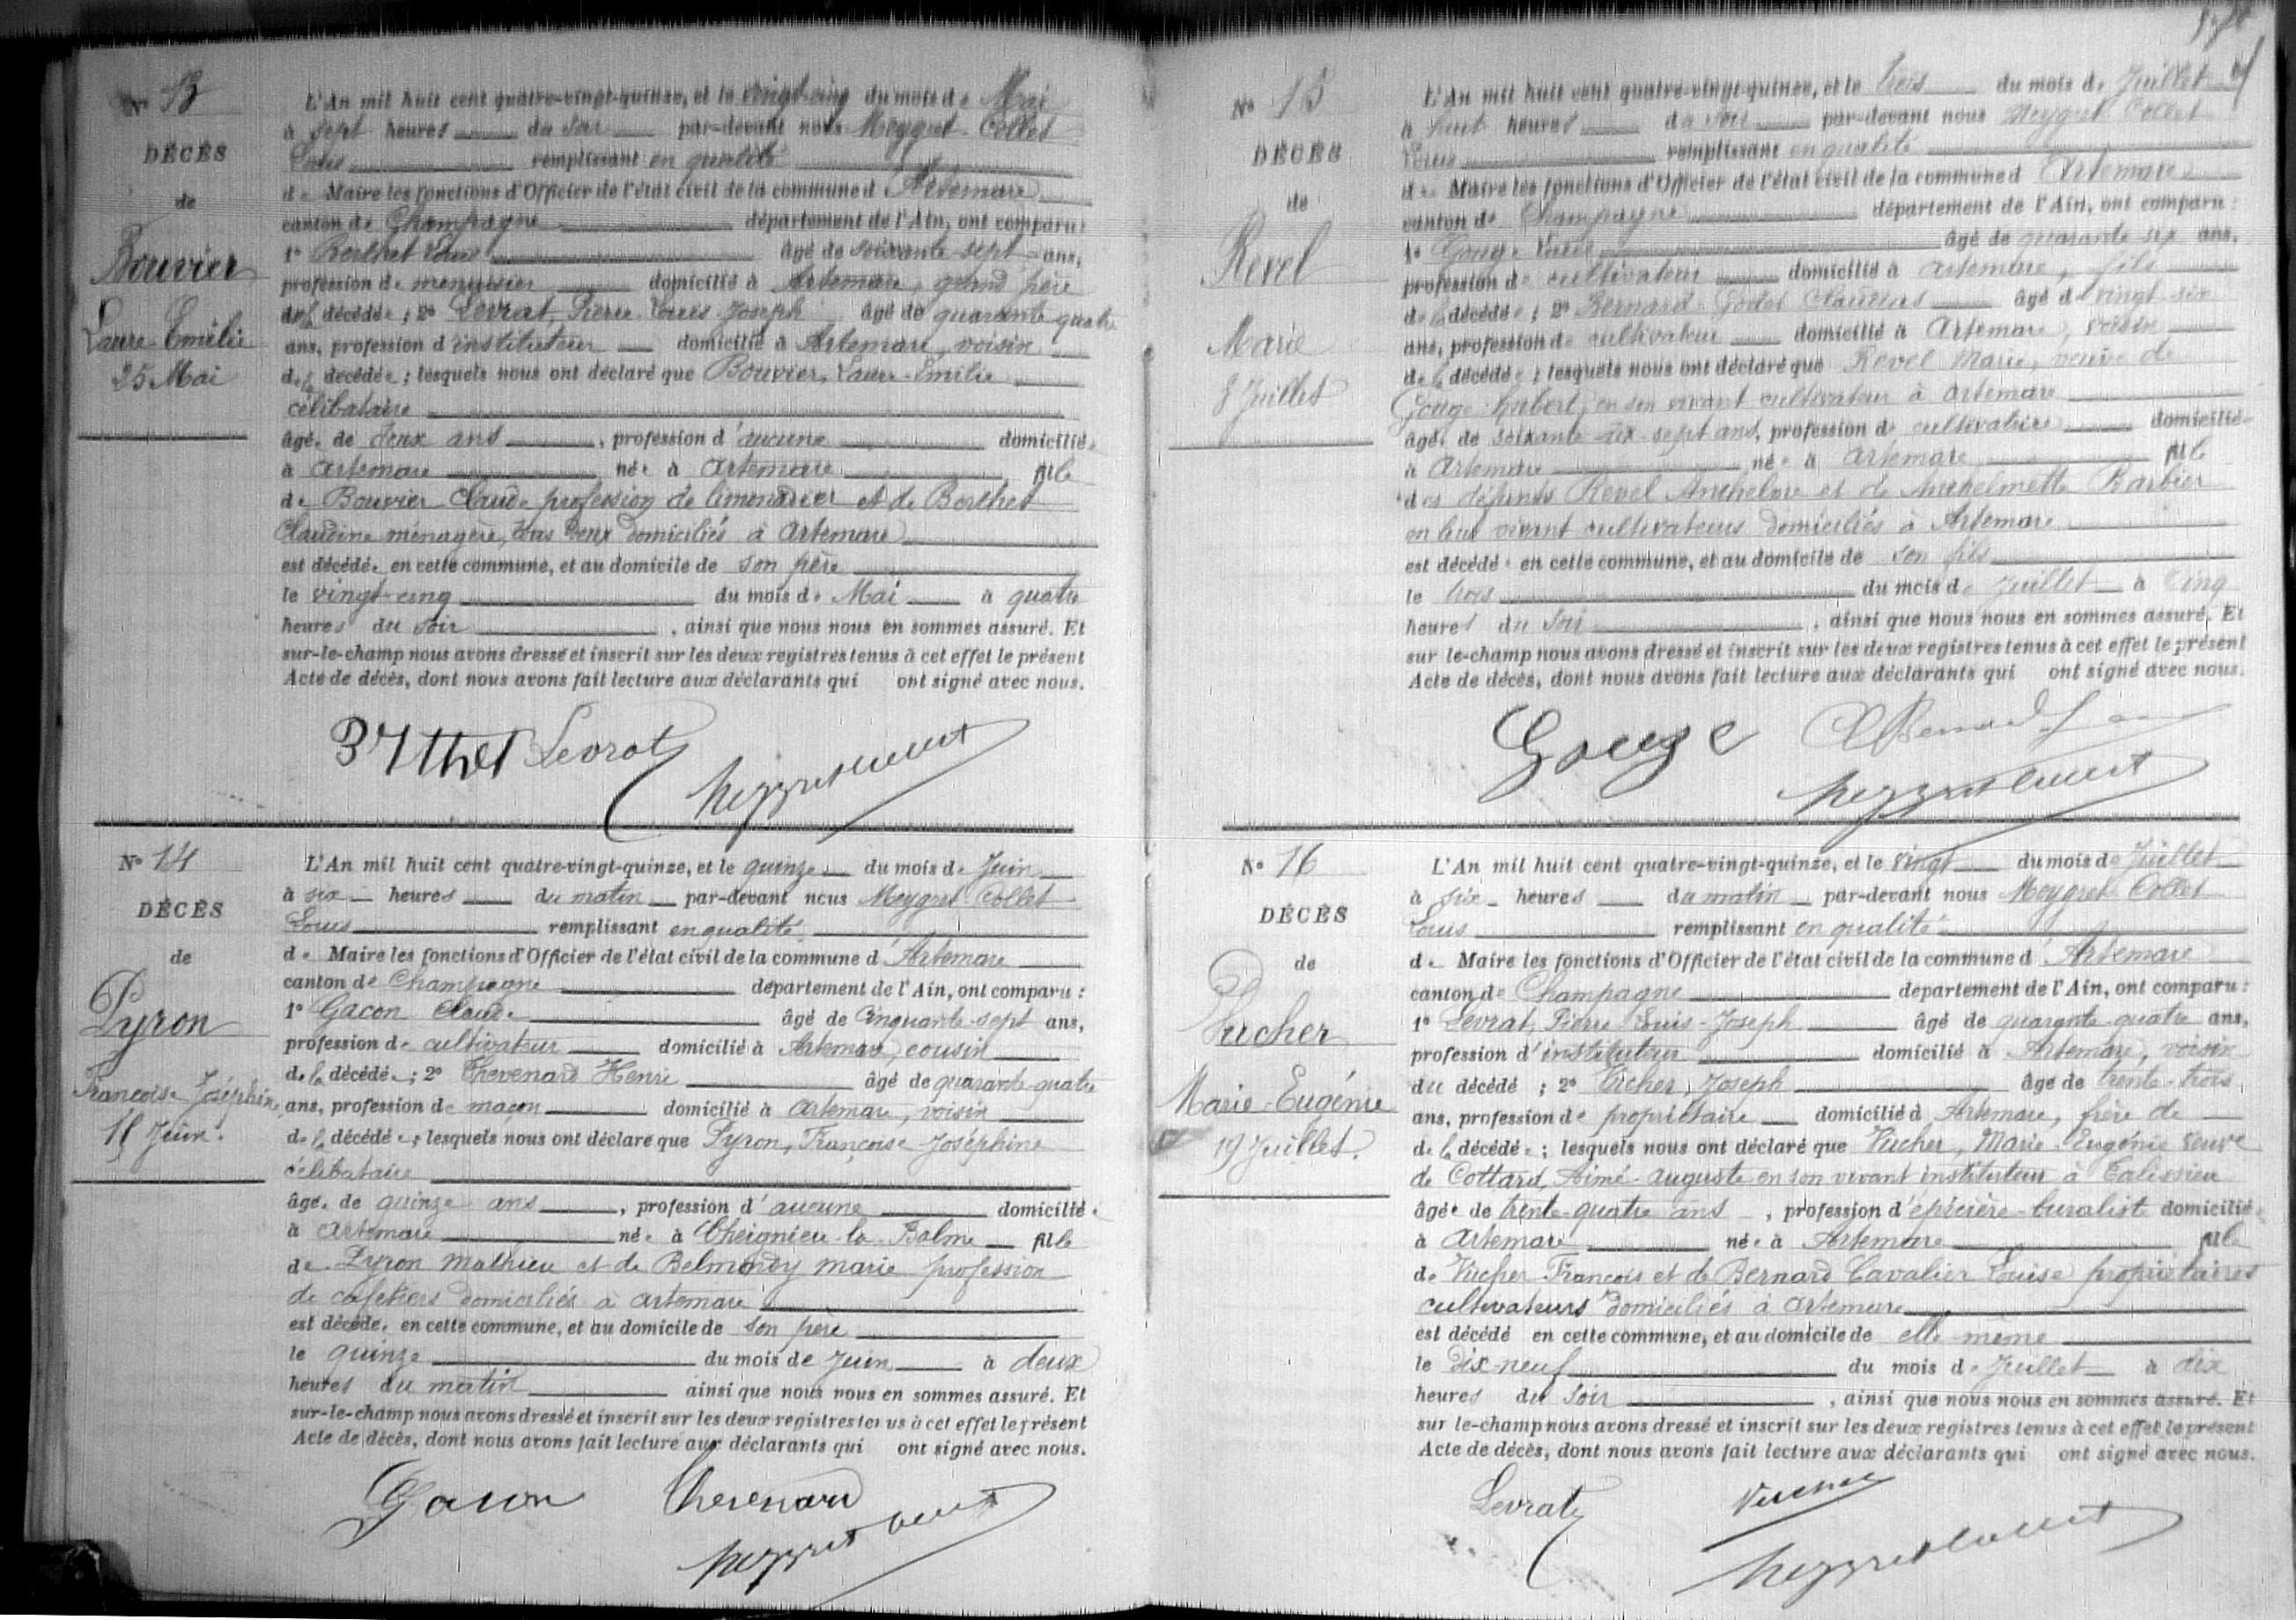 N° 13
DÉCÈS
de
Bouvier
Laure-Emilie
25 Mai
L'An mil huit cent quatre-vingt-quinze, et le vingt-cinq du mois de Mai
à sept heures du soir par-devant nous Meygret-Collet
Louis remplissant en qualité
de Maire les fonctions d'Officier de l'état civil de la commune d'Artemare
canton de Champagne département de l'Ain, ont comparu:
1° Berthet Louis âgé de soixante-sept ans,
profession de menuisier domicilié à Artemare, grand père
de la décédée; 2° Levrat, Pierre Louis Joseph âgé de quarante quatre
ans, profession d'instituteur domicilié à Artemare, voisin
de la décédée; lesquels nous ont déclaré que Bouvier, Laure-Emilie
célibataire
âgée de deux ans, profession d'aucune domiciliée
à Artemare née à Artemare fille
de Bouvier Claude profession de limonadier et de Berthet
Claudine ménagère, tous deux domiciliés à Artemare
est décédée en cette commune, et au domicile de son père
le vingt-cinq du mois de Mai à quatre
heures du soir, ainsi que nous nous en sommes assuré. Et
sur-le-champ nous avons dressé et inscrit sur les deux registres tenus à cet effet le présent
Acte de décès, dont nous avons fait lecture aux déclarants qui ont signé avec nous.
Levrat
N° 14
DÉCÈS
de
Pyron
Françoise Joséphine
15 Juin.
L'An mil huit cent quatre-vingt-quinze, et le quinze du mois de Juin
à six heures du matin par-devant nous Meygret Collet
Louis remplissant en qualité
de Maire les fonctions d'Officier de l'état civil de la commune d'Artemare
canton de Champagne département de l'Ain, ont comparu:
1° Gacon Claude âgé de cinquante-sept ans,
profession de cultivateur domicilié à Artemare, cousin
de la décédée; 2° Thevenard Henri âgé de quarante-quatre
ans, profession de maçon domicilié à Artemare, voisin
de la décédée; lesquels nous ont déclaré que Pyron, Françoise Joséphine
célibataire
âgée de quinze ans, profession d'aucune domiciliée
à Artemare née à Cheignieu-la-Balme fille
de Pyron Mathieu et de Belmondy Marie profession
de cafetiers domiciliés à Artemare
est décédée en cette commune, et au domicile de son père
le quinze du mois de Juin à deux
heures du matin ainsi que nous nous en sommes assuré. Et
sur-le-champ nous avons dressé et inscrit sur les deux registres tenus à cet effet le présent
Acte de décès, dont nous avons fait lecture aux déclarants qui ont signé avec nous.
Gacon Thevenard
N° 15
DÉCÈS
de
Revel
Marie
8 Juillet
L'An mil huit cent quatre-vingt-quinze, et le trois du mois de Juillet
à huit heures du soir par-devant nous Meygret Collet
Louis remplissant en qualité
de Maire les fonctions d'Officier de l'état civil de la commune d'Artemare
canton de Champagne département de l'Ain, ont comparu:
1° Gouge âgé de quarante six ans,
profession de cultivateur domicilié à Artemare, fils
de la décédée; 2° Bernard-Godet Claudius âgé de vingt six
ans, profession de cultivateur domicilié à Artemare, voisin
de la décédée; lesquels nous ont déclaré que Revel Marie, veuve de
Gouge Hubert, en son vivant cultivateur à Artemare
âgée de soixante-dix-sept ans, profession de cultivatrice domiciliée
à Artemare née à Artemare fille
des défunts Revel Anthelme et de Anthelmette Barbier
en leur vivant cultivateurs domiciliés à Artemare
est décédée en cette commune, et au domicile de son fils
le trois du mois de Juillet à cinq
heures du soir, ainsi que nous nous en sommes assuré. Et
sur le-champ nous avons dressé et inscrit sur les deux registres tenus à cet effet le présent
Acte de décès, dont nous avons fait lecture aux déclarants qui ont signé avec nous.
Gouge
N° 16
DÉCÈS
de
Vucher
Marie-Eugénie
19 Juillet.
L'An mil huit cent quatre-vingt-quinze, et le vingt du mois de Juillet
à six heures du matin par-devant nous Meygret-Collet
Louis remplissant en qualité
de Maire les fonctions d'Officier de l'état civil de la commune d'Artemare
canton de Champagne département de l'Ain, ont comparu:
1° Levrat, Pierre Louis-Joseph âgé de quarante-quatre ans,
profession d'instituteur domicilié à Artemare, voisin
du décédé; 2° Vucher, Joseph âgé de trente-trois
ans, profession de propriétaire domicilié à Artemare, frère de
de la décédée; lesquels nous ont déclaré que Vucher, Marie-Eugénie veuve
de Cottard, Aimé-Auguste en son vivant instituteur à Talissieu
âgée de trente-quatre ans, profession d'épicière-buraliste domiciliée
à Artemare née à Artemare fille
de Vucher François et de Bernard Cavalier Louise propriétaires
cultivateurs domiciliés à Artemare
est décédé en cette commune, et au domicile de elle-même
le dix-neuf du mois de Juillet à dix
heures du soir, ainsi que nous nous en sommes assuré. Et
sur le-champ nous avons dressé et inscrit sur les deux registres tenus à cet effet le présent
Acte de décès, dont nous avons fait lecture aux déclarants qui ont signé avec nous.
Levrat Vucher